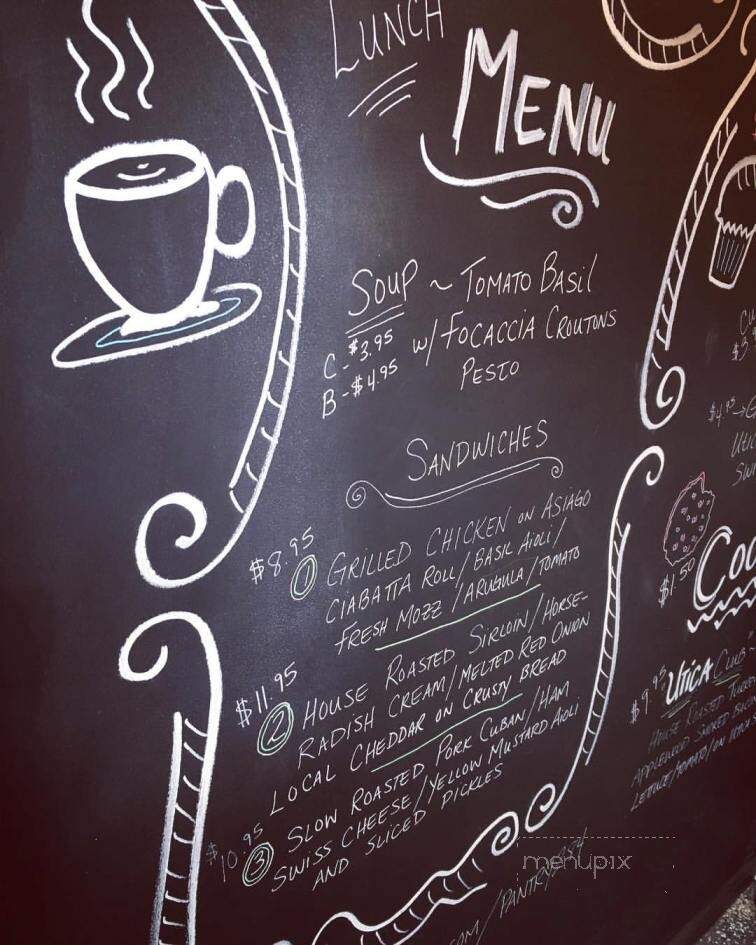 LUNCH
MENU
SOUP ~ TOMATO BASIL
C - $3.95 w/ FOCACCIA CROUTONS
B - $4.95 PESTO
SANDWICHES
$8.95
① GRILLED CHICKEN ON ASIAGO
CIABATTA ROLL / BASIL AIOLI /
FRESH MOZZ / ARUGULA / TOMATO
$11.95
② HOUSE ROASTED SIRLOIN / HORSE-
RADISH CREAM / MELTED RED ONION
LOCAL CHEDDAR ON CRUSTY BREAD
$10.95
③ SLOW ROASTED PORK CUBAN / HAM
SWISS CHEESE / YELLOW MUSTARD AIOLI
AND SLICED PICKLES
.COM / PANTRY
$4.95
$1.50
Coo
$9.95 UTICA CLUB ~
HOUSE ROASTED
APPLEWOOD SMOKED
LETTUCE / TOMATO / ON
menupix